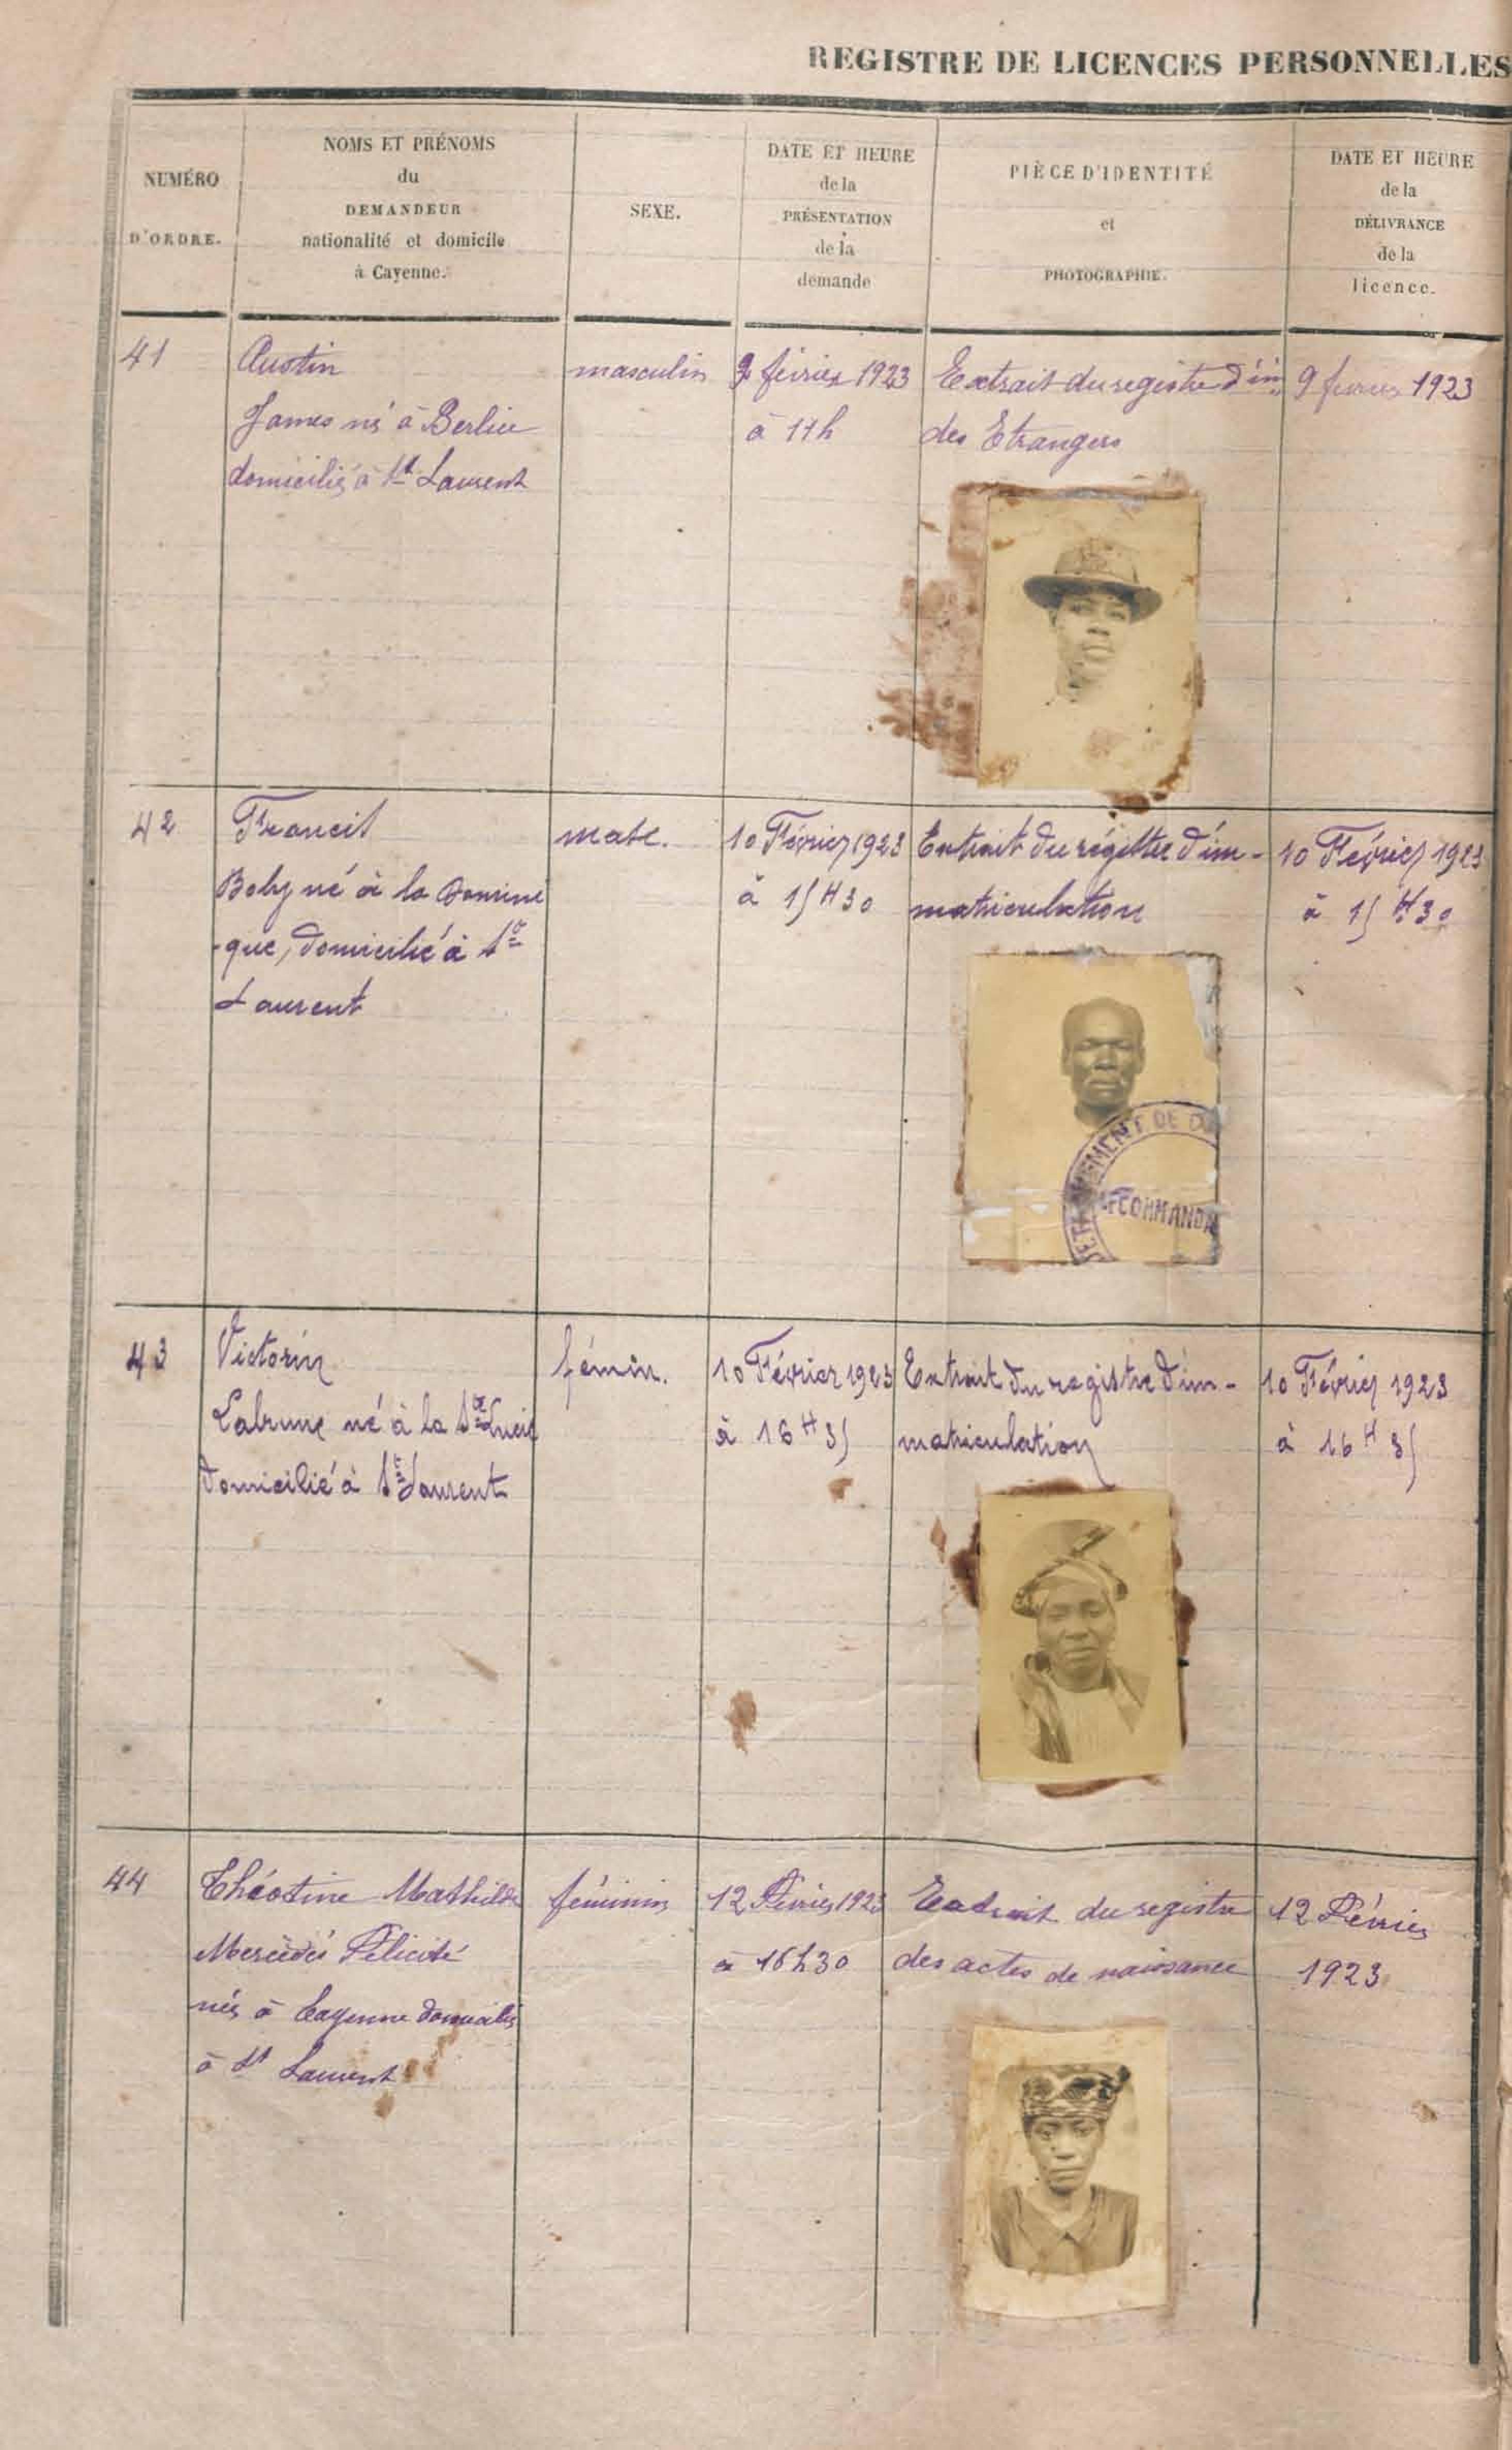 REGISTRE DE LICENCES PERSONNELLES
NUMÉRO
D'ORDRE.
NOMS ET PRÉNOMS
du
DEMANDEUR
nationalité et domicile
à Cayenne.
SEXE.
DATE ET HEURE
de la
PRÉSENTATION
de la
demande
PIÈCE D'IDENTITÉ
et
PHOTOGRAPHIE.
DATE ET HEURE
de la
DÉLIVRANCE
de la
licence.
41
Austin
James né à Berbice
domicilié à St Laurent
masculin
9 février 1923
à 11h
Extrait du registre d'im
des Etrangers
9 février 1923
42
Francis
Boby né à la Domini
-que, domicilié à St
Laurent
masc.
10 Février 1923
à 15H30
Extrait du régistre d'im-
matriculation
10 Février 1923
à 15H30
DE
COMMANDA
43
Victorin
Labrune né à la Ste Lucie
domicilié à St Laurent
fémin.
10 Février 1923
à 16H35
Extrait du registre d'im-
matriculation
10 Février 1923
à 16H35
44
Théostine Mathilde
Mercédès Félicité
née à Cayenne domicilié
à St Laurent
féminin
12 Février 1923
à 16h30
Extrait du registre
des actes de naissance
12 Février
1923